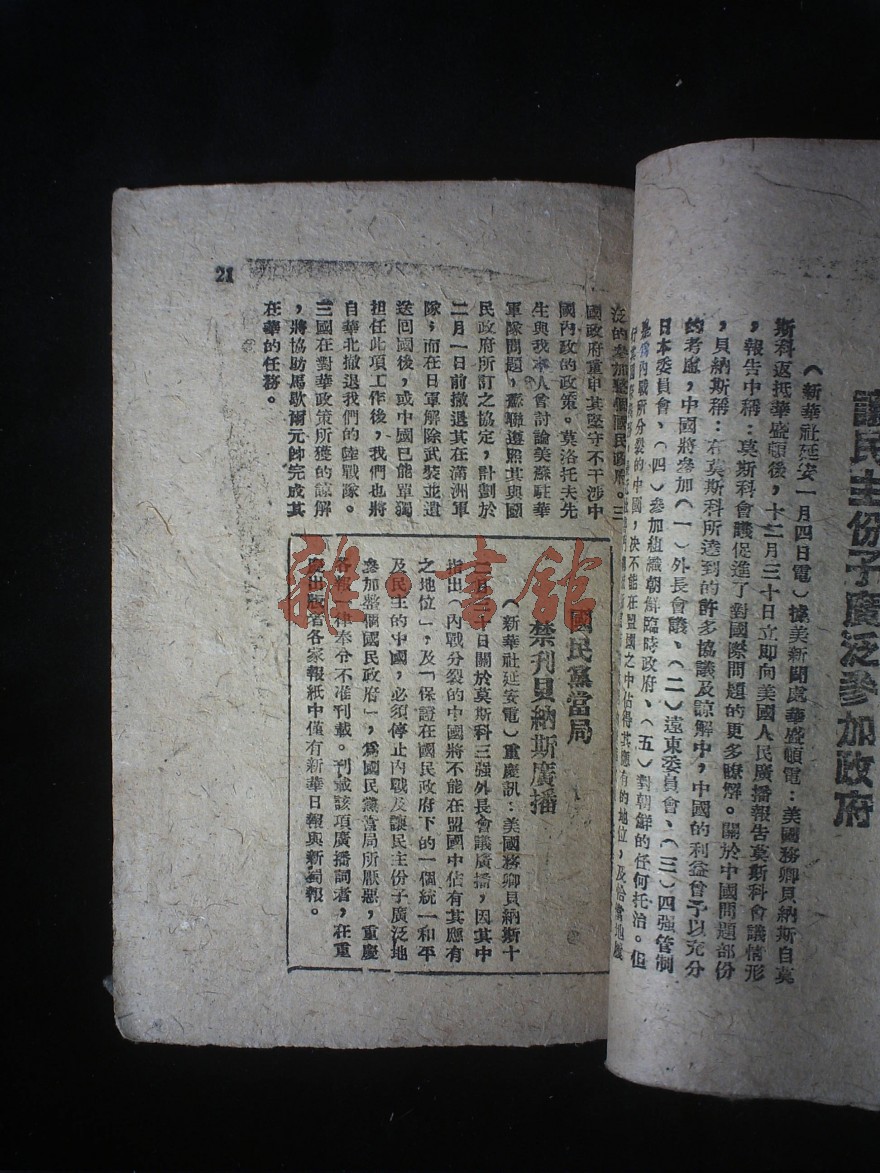 讓民主份子廣泛參加政府
（新華社延安一月四日電）據美新聞處華盛頓電：美國務卿貝納斯自莫
斯科返抵華盛頓後，十二月三十日立即向美國人民廣播報告莫斯科會議情形
，報告中稱：莫斯科會議促進了對國際問題的更多瞭解。關於中國問題部份
，貝納斯稱：在莫斯科所達到的許多協議及諒解中，中國的利益曾予以充分
的考慮，中國將參加（一）外長會議、（二）遠東委員會、（三）四强管制
日本委員會、（四）參加組織朝鮮臨時政府、（五）對朝鮮的任何托治。但
內戰所分裂的中國，决不能在盟國之中佔得其應有的地位，及恰當地
泛的參加整個國民政府。三
國政府重申其堅守不干涉中
國內政的政策。莫洛托夫先
生與我本人曾討論美蘇駐華
軍隊問題，蘇聯遵照其與國
民政府所訂之協定，計劃於
二月一日前撤退其在滿洲軍
隊；而在日軍解除武裝並遣
送回國後，或中國已能單獨
担任此項工作後，我們也將
自華北撤退我們的陸戰隊。
三國在對華政策所獲的諒解
，將協助馬歇爾元帥完成其
在華的任務。
國民黨當局
禁刊貝納斯廣播
（新華社延安電）重慶訊：美國務卿貝納斯十
二月三十日關於莫斯科三强外長會議廣播，因其中
指出（內戰分裂的中國將不能在盟國中佔有其應有
之地位」，及「保證在國民政府下的一個統一和平
及民主的中國，必須停止內戰及讓民主份子廣泛地
參加整個國民政府」，爲國民黨當局所厭惡，重慶
各報一律奉令不准刊載。刊載該項廣播詞者，在重
慶出版者各家報紙中僅有新華日報與新蜀報。
21
雜·書館